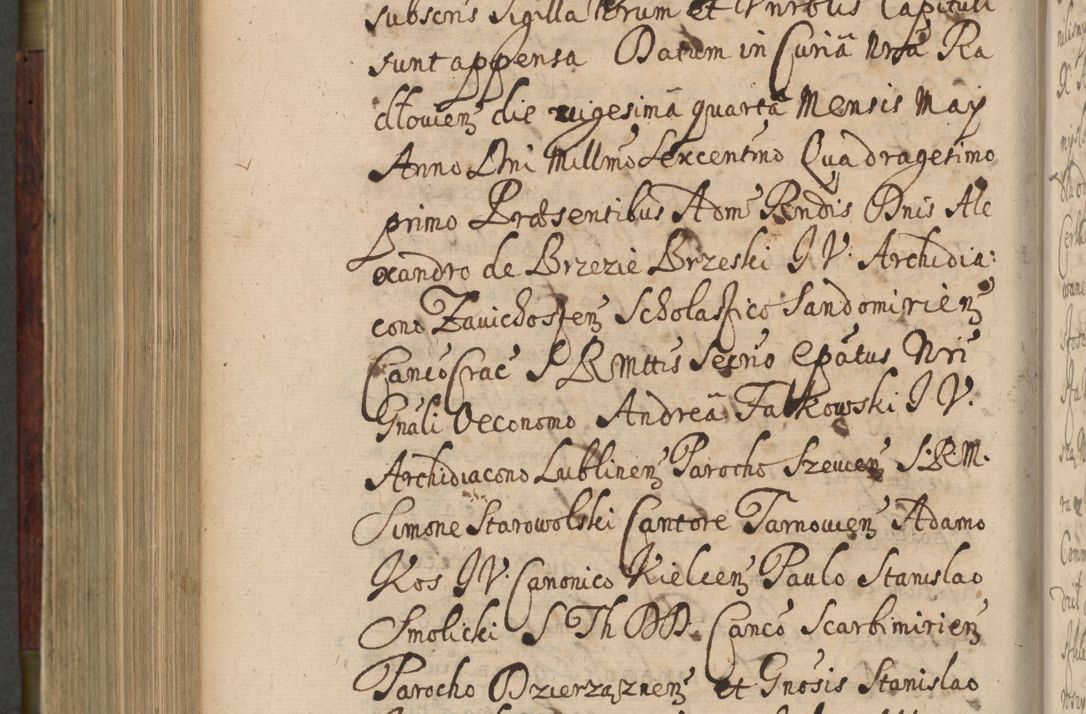 subscris Sigilla
sunt appensa Datum in Curiã Nrã Ra
dłouien̄ die vigesimã quartã Mensis Maÿ
Anno Dni Millmo Sexcentmo Quadragesimo
primo Præsentibus Adm Rendis Dnis Ale
xandro de Brzezie Brzeski I V: Archidia:
cono Zauichosten̄ Scholastico Sandomirien̄
Canco Crac S R Mttis Secrio Epatus Nri
Gnali Oeconomo Andreã Falkowski I V:
Archidiacono Lublinen̄ Parocho Szeuien̄ S: R M.
Simone Starowolski Cantore Tarnouien̄ Adamo
Kos I V: Canonico Kielcen̄ Paulo Stanislao
Smolicki S Th DD. Canco Scarbimirien̄
Parocho Dzierząznen̄ et Gnosis Stanislao